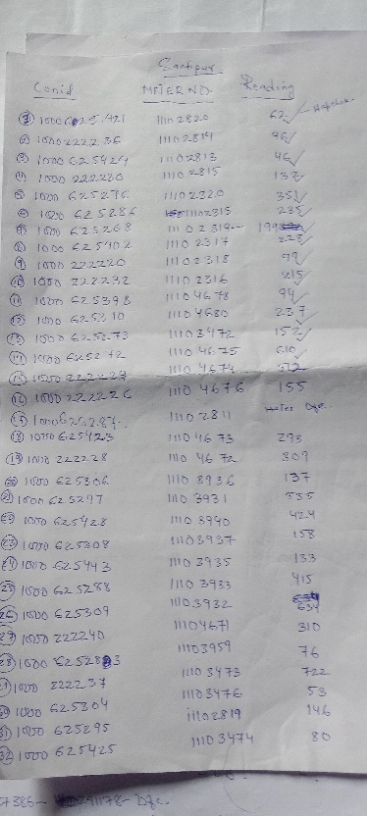 Santipur
Conid METER NO. Reading
① 1000625421 11102820 62
② 1000222236 11102814 96
③ 1000625424 11102813 46
④ 1000222230 11102815 132
⑤ 1000625276 11102320 351
⑥ 1000625286 11102315 235
⑧ 1000625402 11102317 228
⑨ 1000222220 11102318
⑩ 1000222232 11102316 215
⑪ 1000625398 11104678 94
⑫ 11104680 237
⑬ 1000625273 11103472 152
⑭ 1000625272 11104675 610
⑮ 1000222229 11104674
⑯ 1000222226 11104676 155
⑰ 11102811
⑱ 1000625423 11104673 293
⑲ 1000222228 11104672 309
⑳ 1000625306 11103936 137
1000625297 11103931 535
1000625428 11103940 424
㉓ 1000625308 11103937 158
㉔ 1000625443 11103935 133
1000625288 11103933 415
㉖ 1000625309 11103932 634
㉗ 1000222240 11104671 310
㉘ 1000625283 11103959 76
1000222237 11103473 722
㉚ 1000625304 11103476 53
㉛ 1000625295 11102819 146
㉜ 1000625425 11103474 80